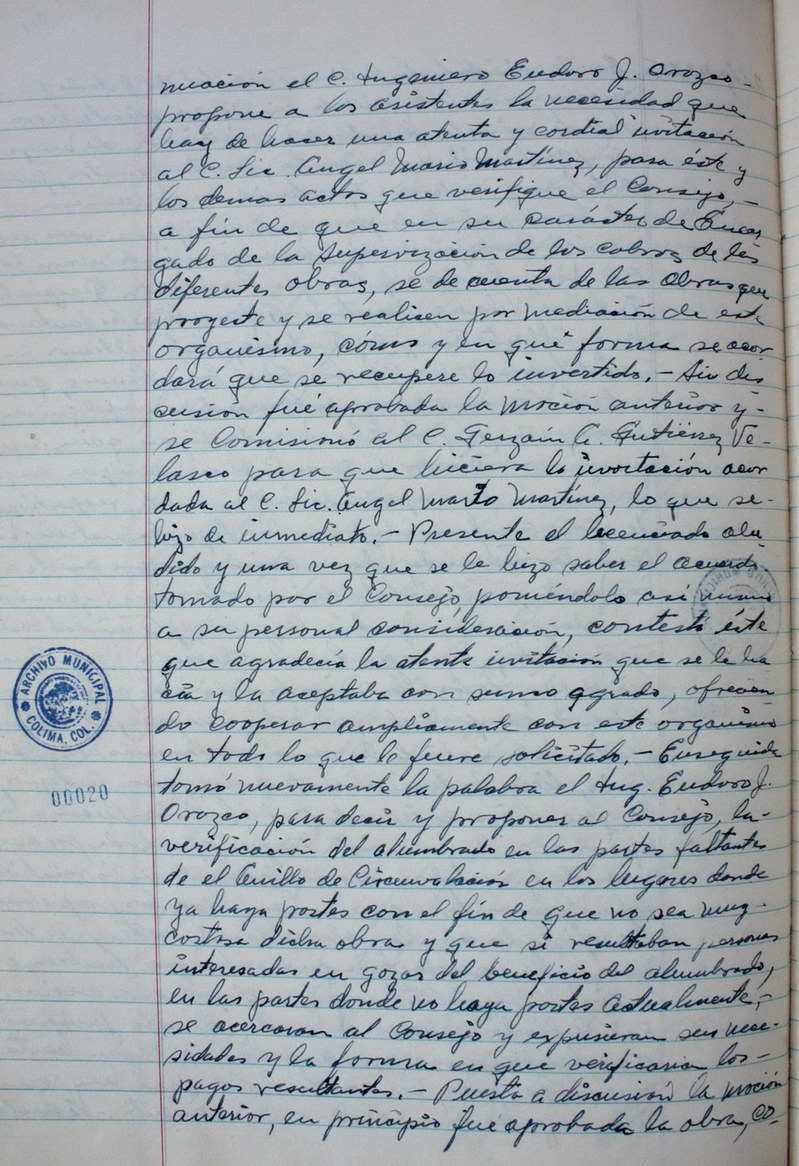 nuación el C. Ingeniero Eudoro J. Orozco-
propone a los asistentes la necesidad que
hay de hacer una atenta y cordial invitación
al C. Lic. Angel Mario Martínez, para éste y
los demas actos que verifique el Consejo,-
a fin de que en su carácter de Encar
gado de la Supervización de los cobros de las
diferentes obras, se de cuenta de las obras que
proyecte y se realicen por mediación de este
organismo, cómo y en qué forma se acor
dará que se recupere lo invertido.- Sin dis
cusión fué aprobada la moción anterior y-
se Comisionó al C. Gerzaín G. Gutiérrez Ve-
lasco para que hiciera la invitación acor
dada al C. Lic. Angel Mario Martínez, lo que se-
hizo de inmediato.- Presente el licenciado alu-
dido y una vez que se le hizo saber el acuerdo
tomado por el Consejo, poniéndolo así mismo
a su personal consideración, contestó éste
que agradecía la atenta invitación que se le ha
cía y la aceptaba con sumo agrado, ofrecien
do cooperar ampliamente con este organismo
en todo lo que le fuere solicitado.- Enseguida
tomó nuevamente la palabra el Ing. Eudoro J.
Orozco, para decir y proponer al Consejo, la-
verificación del alumbrado en las partes faltantes
de el Anillo de Circunvalación en los lugares donde
ya haya postes con el fin de que no sea muy-
costosa dicha obra y que si resultaban personas
interesadas en gozar del beneficio del alumbrado,
en las partes donde no haya postes actualmente,-
se acercaran al Consejo y expusieran sus nece-
sidades y la forma en que verificarían los-
pagos resultantes.- Puesta a discusión la moción
anterior, en principio fué aprobada la obra, co-
ARCHIVO MUNICIPAL
COLIMA, COL.
00020